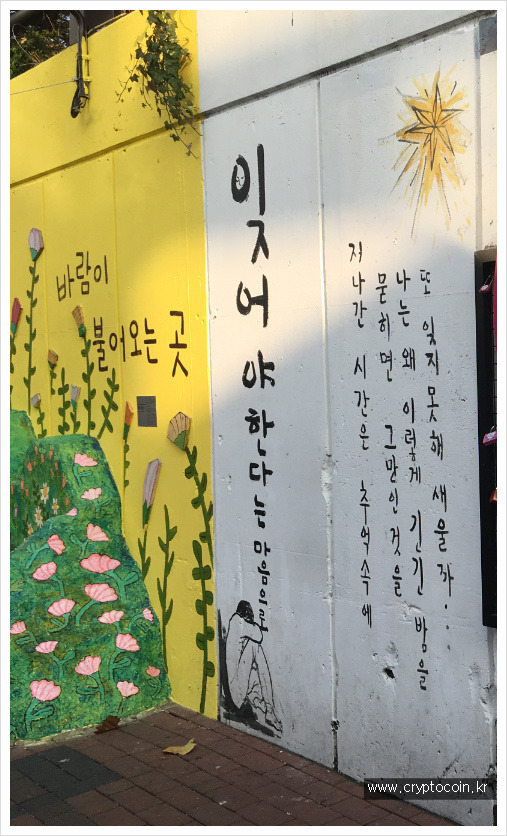 바람이
불어오는 곳
잊어야한다는 마음으로
지나간 시간은 추억속에
묻히면 그만인것을
나는 왜 이렇게 긴긴 밤을
또 잊지못해 새울까..
www.cryptocoin.kr